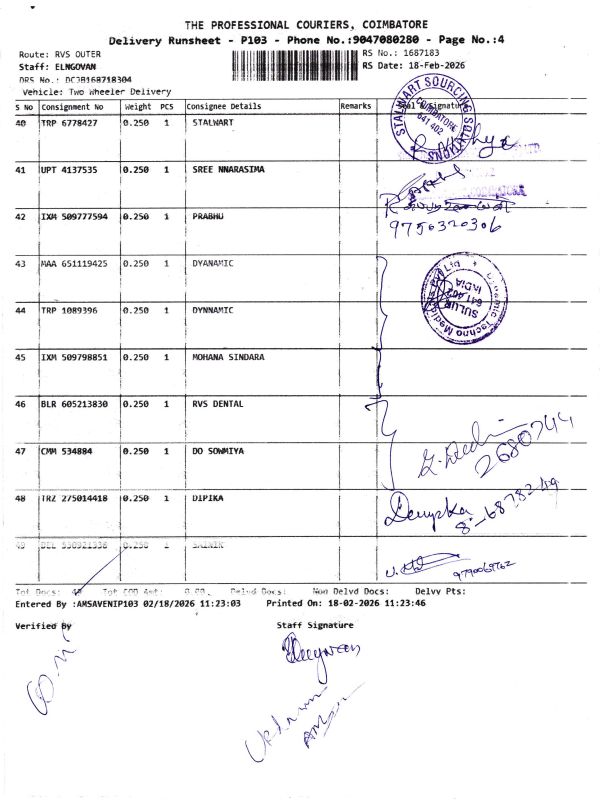 THE PROFESSIONAL COURIERS, COIMBATORE
Delivery Runsheet - P103 - Phone No.:9047080280 - Page No.:4
Route: RVS OUTER
RS No.: 1687183
Staff: ELNGOVAN
RS Date: 18-Feb-2026
DRS No.: DCJB168718304
Vehicle: Two Wheeler Delivery
S No Consignment No Weight PCS Consignee Details Remarks Seal &/Signature
40 TRP 6778427 0.250 1 STALWART
STALWART SOURCING SOLUTIONS
COIMBATORE
641 402
41 UPT 4137535 0.250 1 SREE NNARASIMA
42 IXM 509777594 0.250 1 PRABHU
9750320306
43 MAA 651119425 0.250 1 DYANAMIC
Dynamic Techno Medicals Pvt Ltd
SULUR
641 402
INDIA
44 TRP 1089396 0.250 1 DYNNAMIC
45 IXM 509798851 0.250 1 MOHANA SINDARA
46 BLR 605213830 0.250 1 RVS DENTAL
2680744
47 CMM 534884 0.250 1 DO SOWMIYA
48 TRZ 275014418 0.250 1 DIPIKA
49 DEL 0.250 1
9790069762
Tot Docs: 49 Tot COD Amt: 0.00 Delvd Docs: Non Delvd Docs: Delvy Pts:
Entered By :AMSAVENIP103 02/18/2026 11:23:03 Printed On: 18-02-2026 11:23:46
Verified By Staff Signature